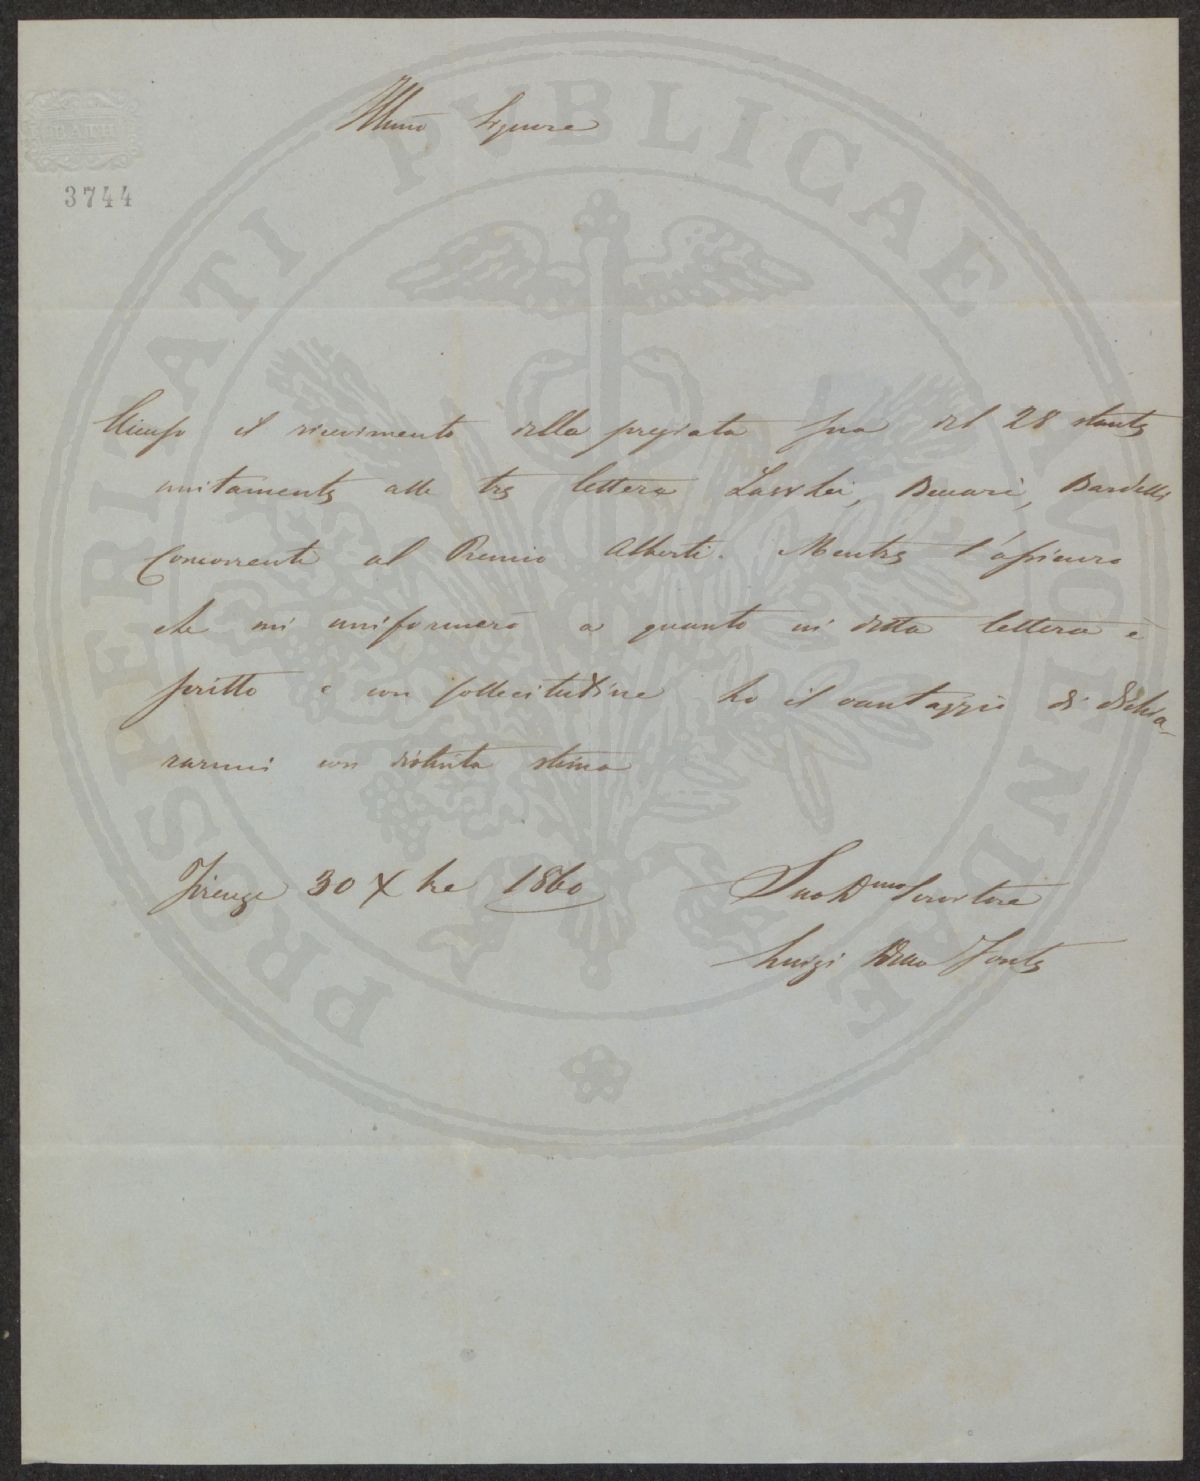 BATH
3744
Illmo Signore
Accuso il ricevimento della pregiata sua del 28 stante
unitamente alle tre lettere Lawley, Beccari, Bardelli
Concorrenti al Premio Alberti. Mentre l'assicuro
che mi uniformerò a quanto in detta lettera è
scritto e con sollecitudine ho il vantaggio di dichia-
rarmi con distinta stima
Firenze 30 Xbre 1860
Suo Dmo Servitore
Luigi Della Fonte
PROSPERITATI PVBLICAE AVGENDAE